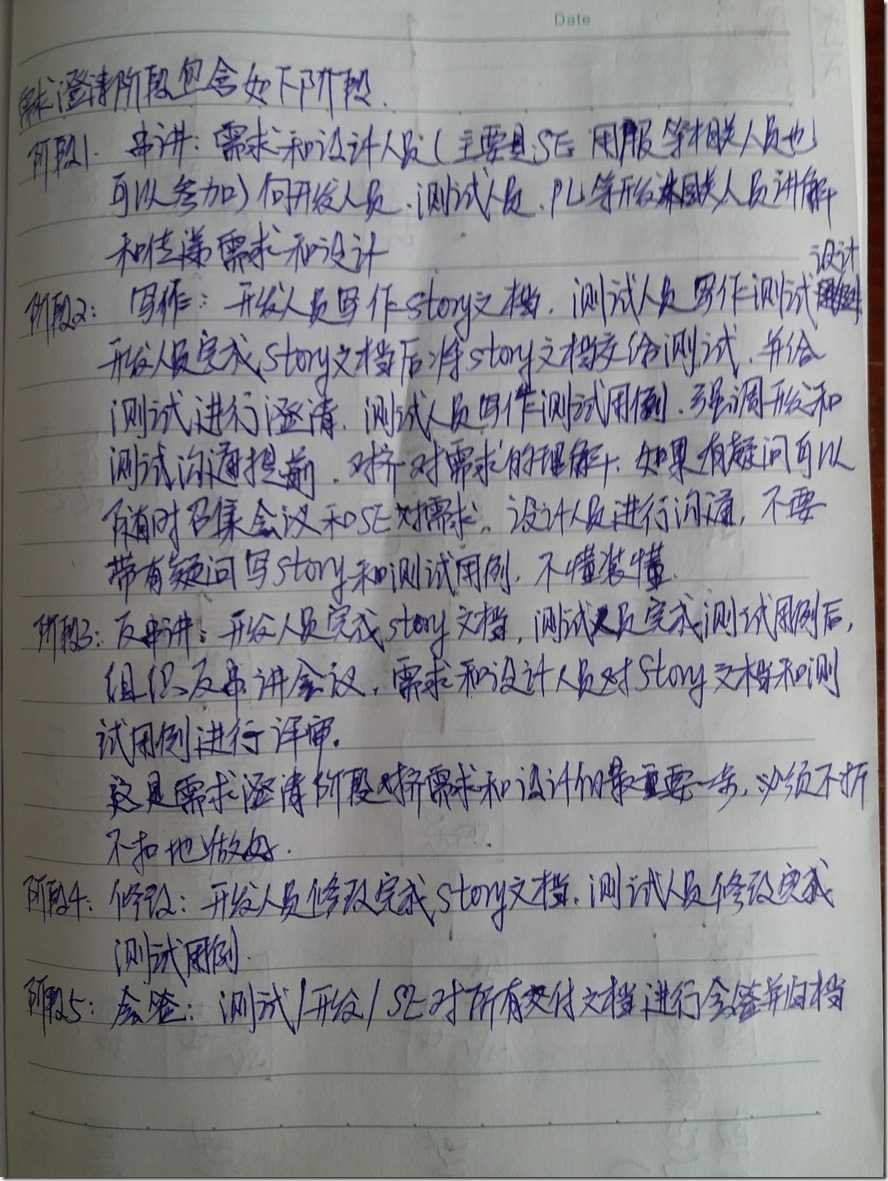 Date
需求澄清阶段包含如下阶段.
阶段1. 串讲:需求和设计人员(主要是SE 用服等相关人员也
可以参加)向开发人员、测试人员、PL等开发相关人员讲解
和传递需求和设计
设计
阶段2: 写作:开发人员写作story文档,测试人员写作测试
开发人员完成story文档后将story文档交给测试,并给
测试进行澄清,测试人员写作测试用例,强调开发和
测试沟通提前,对齐对需求的理解.如果有疑问可以
随时召集会议和SE对需求、设计人员进行沟通,不要
带有疑问写story和测试用例,不懂装懂.
阶段3:反串讲:开发人员完成story文档,测试人员完成测试用例后,
组织反串讲会议,需求和设计人员对story文档和测
试用例进行评审.
这是需求澄清阶段对齐需求和设计的最重要一步,必须不折
不扣地做好.
阶段4:修改:开发人员修改完成story文档,测试人员修改完成
测试用例.
阶段5:会签:测试/开发/SE对所有交付文档进行会签并归档